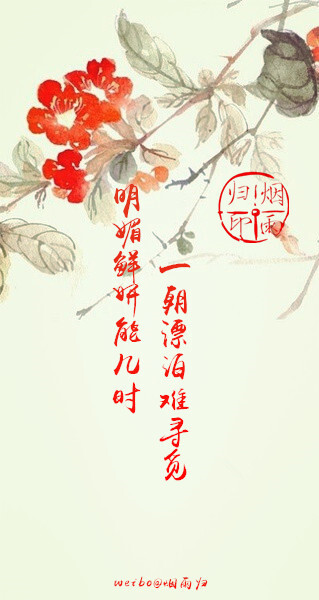 明媚鲜妍能几时
一朝漂泊难寻觅
烟雨
归印
weibo@烟雨归